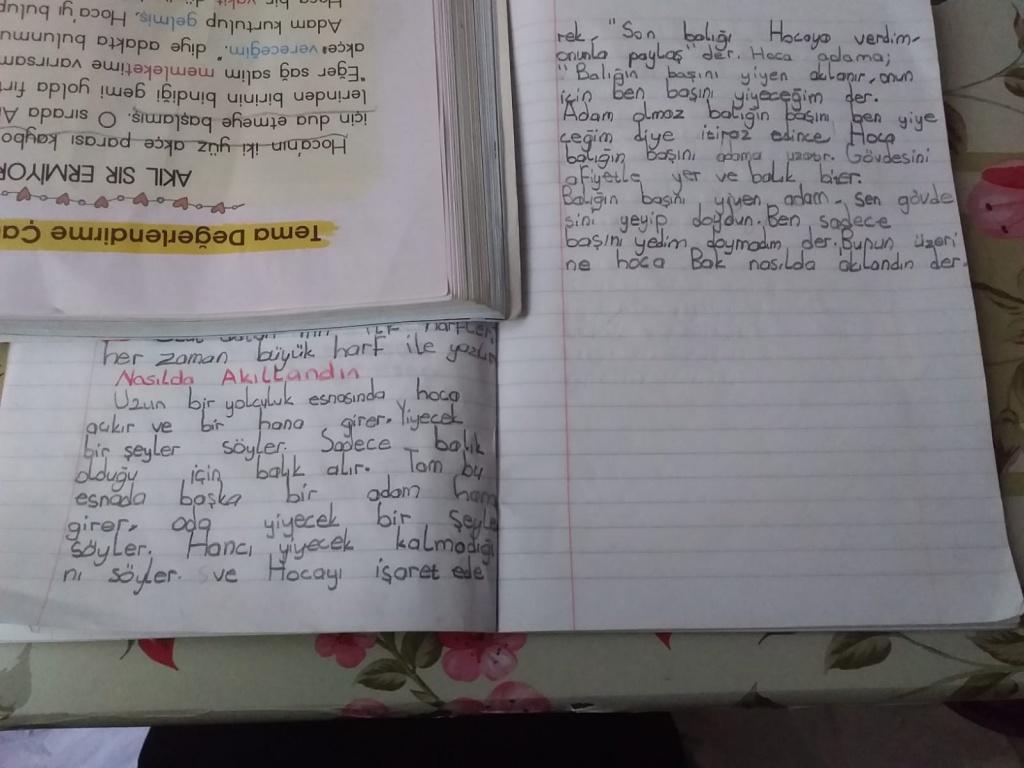 Tema Değerlendirme Ça
AKIL SIR ERMİYOR
Hoca'nın iki yüz akçe parası kaybo
için dua etmeye başlamış. O sırada A
lerinden birinin bindiği gemi yolda fırt
"Eğer sağ salim memleketime varırsam
akçe vereceğim." diye adakta bulunmu
Adam kurtulup gelmiş, Hoca'yı bulup
her zaman büyük harf ile yazılır
Nasılda Akıllandın
Uzun bir yolculuk esnasında hoca
acıkır ve bir hana girer. Yiyecek
bir şeyler söyler. Sadece balık
olduğu için balık alır. Tam bu
esnada başka bir adam hana
girer. oda yiyecek bir şeyle
söyler. Hancı yiyecek kalmadığı
nı söyler. ve Hocayı işaret ede
rek, "Son balığı Hocaya verdim,
onunla paylaş" der. Hoca adama;
"Balığın başını yiyen akllanır, onun
için ben başını yiyeceğim der.
Adam olmaz balığın başını ben yiye
ceğim diye itiraz edince Hoca
balığın başını adama uzatır. Gövdesini
afiyetle yer ve balık biter.
Balığın başını yiyen adam, sen gövde
sini yeyip doydun. Ben sadece
başını yedim doymadım der. Bunun üzeri
ne hoca Bak nasılda akllandın der.